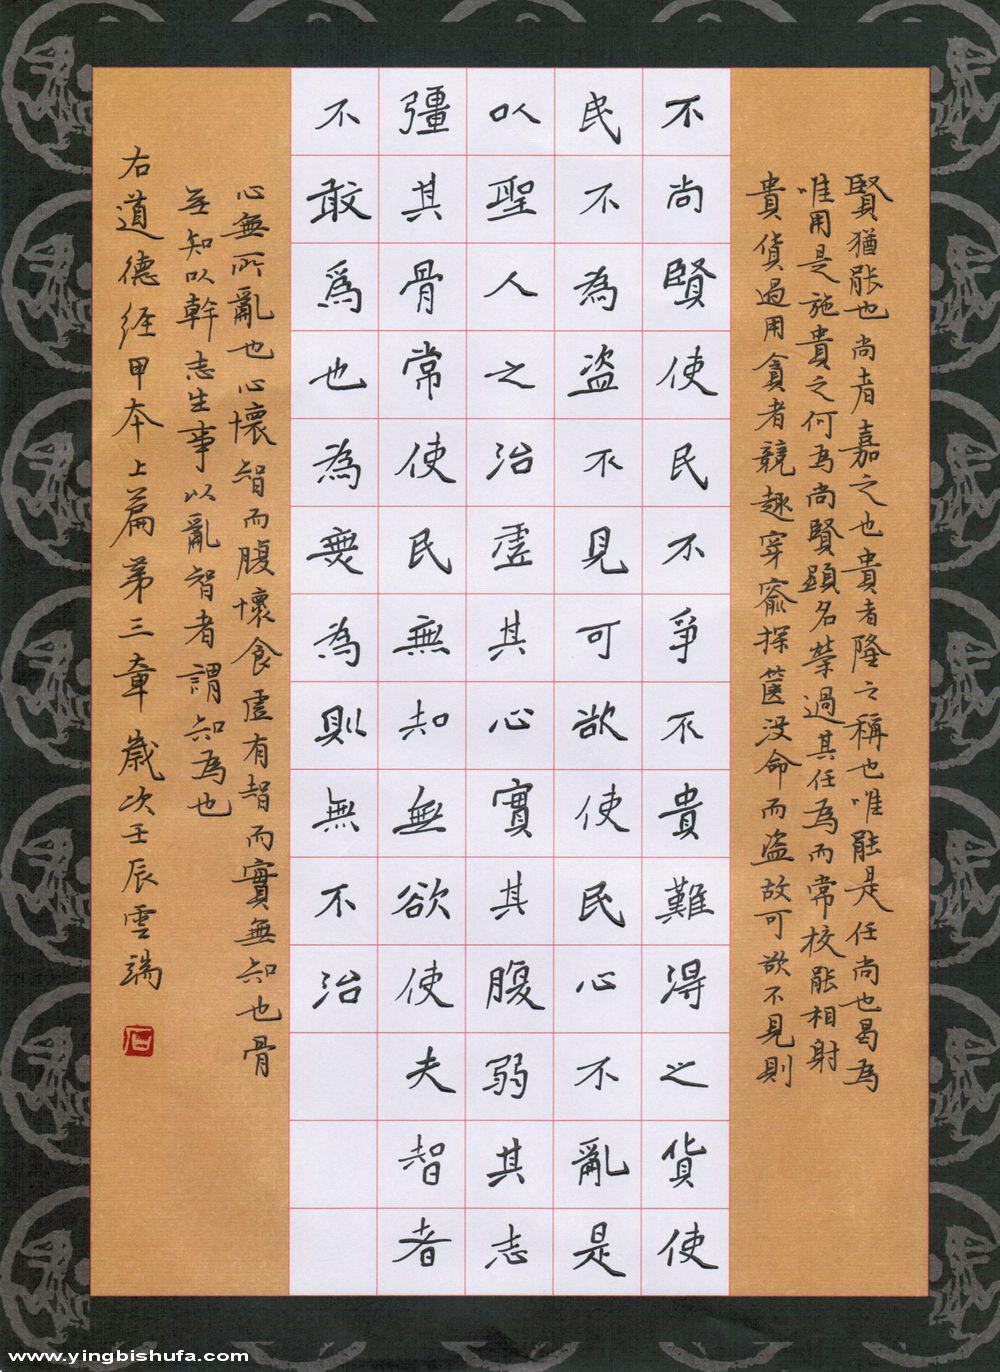 賢猶能也尚者嘉之也貴者隆之稱也唯能是任尚也曷為
唯用是施貴之何為尚賢顯名榮過其任為而常校能相射
貴貨過用貪者競趣穿窬探篋没命而盗故可欲不見則
不尚賢使民不爭不貴難得之貨使
民不為盗不見可欲使民心不亂是
以聖人之治虛其心實其腹弱其志
彊其骨常使民無知無欲使夫智者
不敢爲也為無為則無不治
心無所亂也心懷智而腹懷食虛有智而實無知也骨
無知以幹志生事以亂智者謂知為也
右道德經甲本上篇第三章歲次壬辰雲端
www.yingbishufa.com